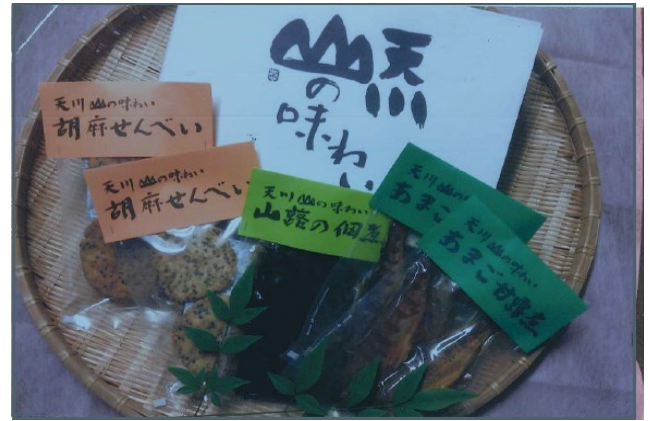 天川
山の
味わい
天川 山の味わい
胡麻せんべい
天川 山の味わい
胡麻せんべい
天川 山の味わい
山蕗の佃煮
天川 山の
あまご
天川 山の味わい
あまご甘露煮